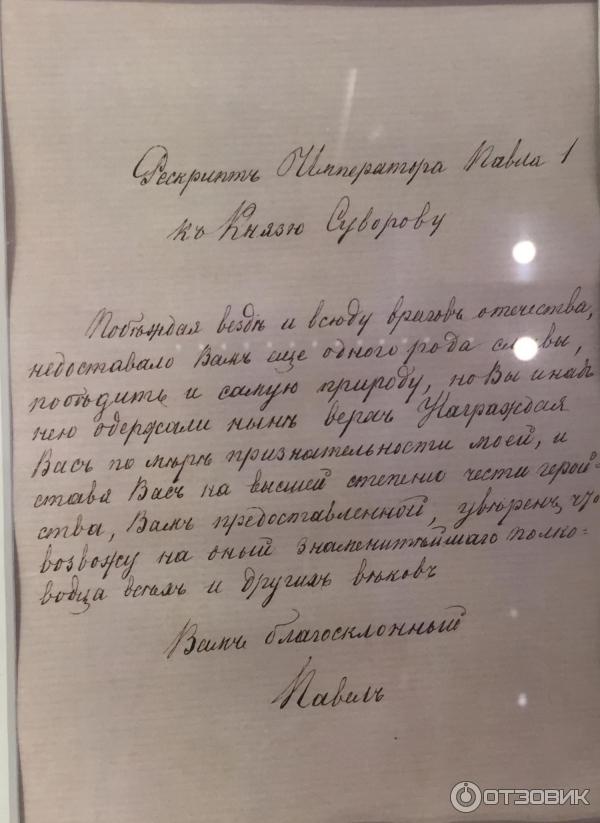 Рескриптъ Императора Павла 1
къ Князю Суворову
Побѣждая вездѣ и всюду враговъ отечества,
недоставало Вамъ еще одного рода славы,
побѣдить и самую природу, но Вы и надъ
нею одержали нынѣ верхъ Награждая
Васъ по мѣрѣ признательности моей, и
ставя Васъ на высшей степени чести герой-
ства, Вамъ предоставленной, увѣренъ, что
возвожу на оный знаменитѣйшаго полко-
водца всѣхъ и другихъ вѣковъ
Вамъ благосклонный
Павелъ
ОТЗОВИК